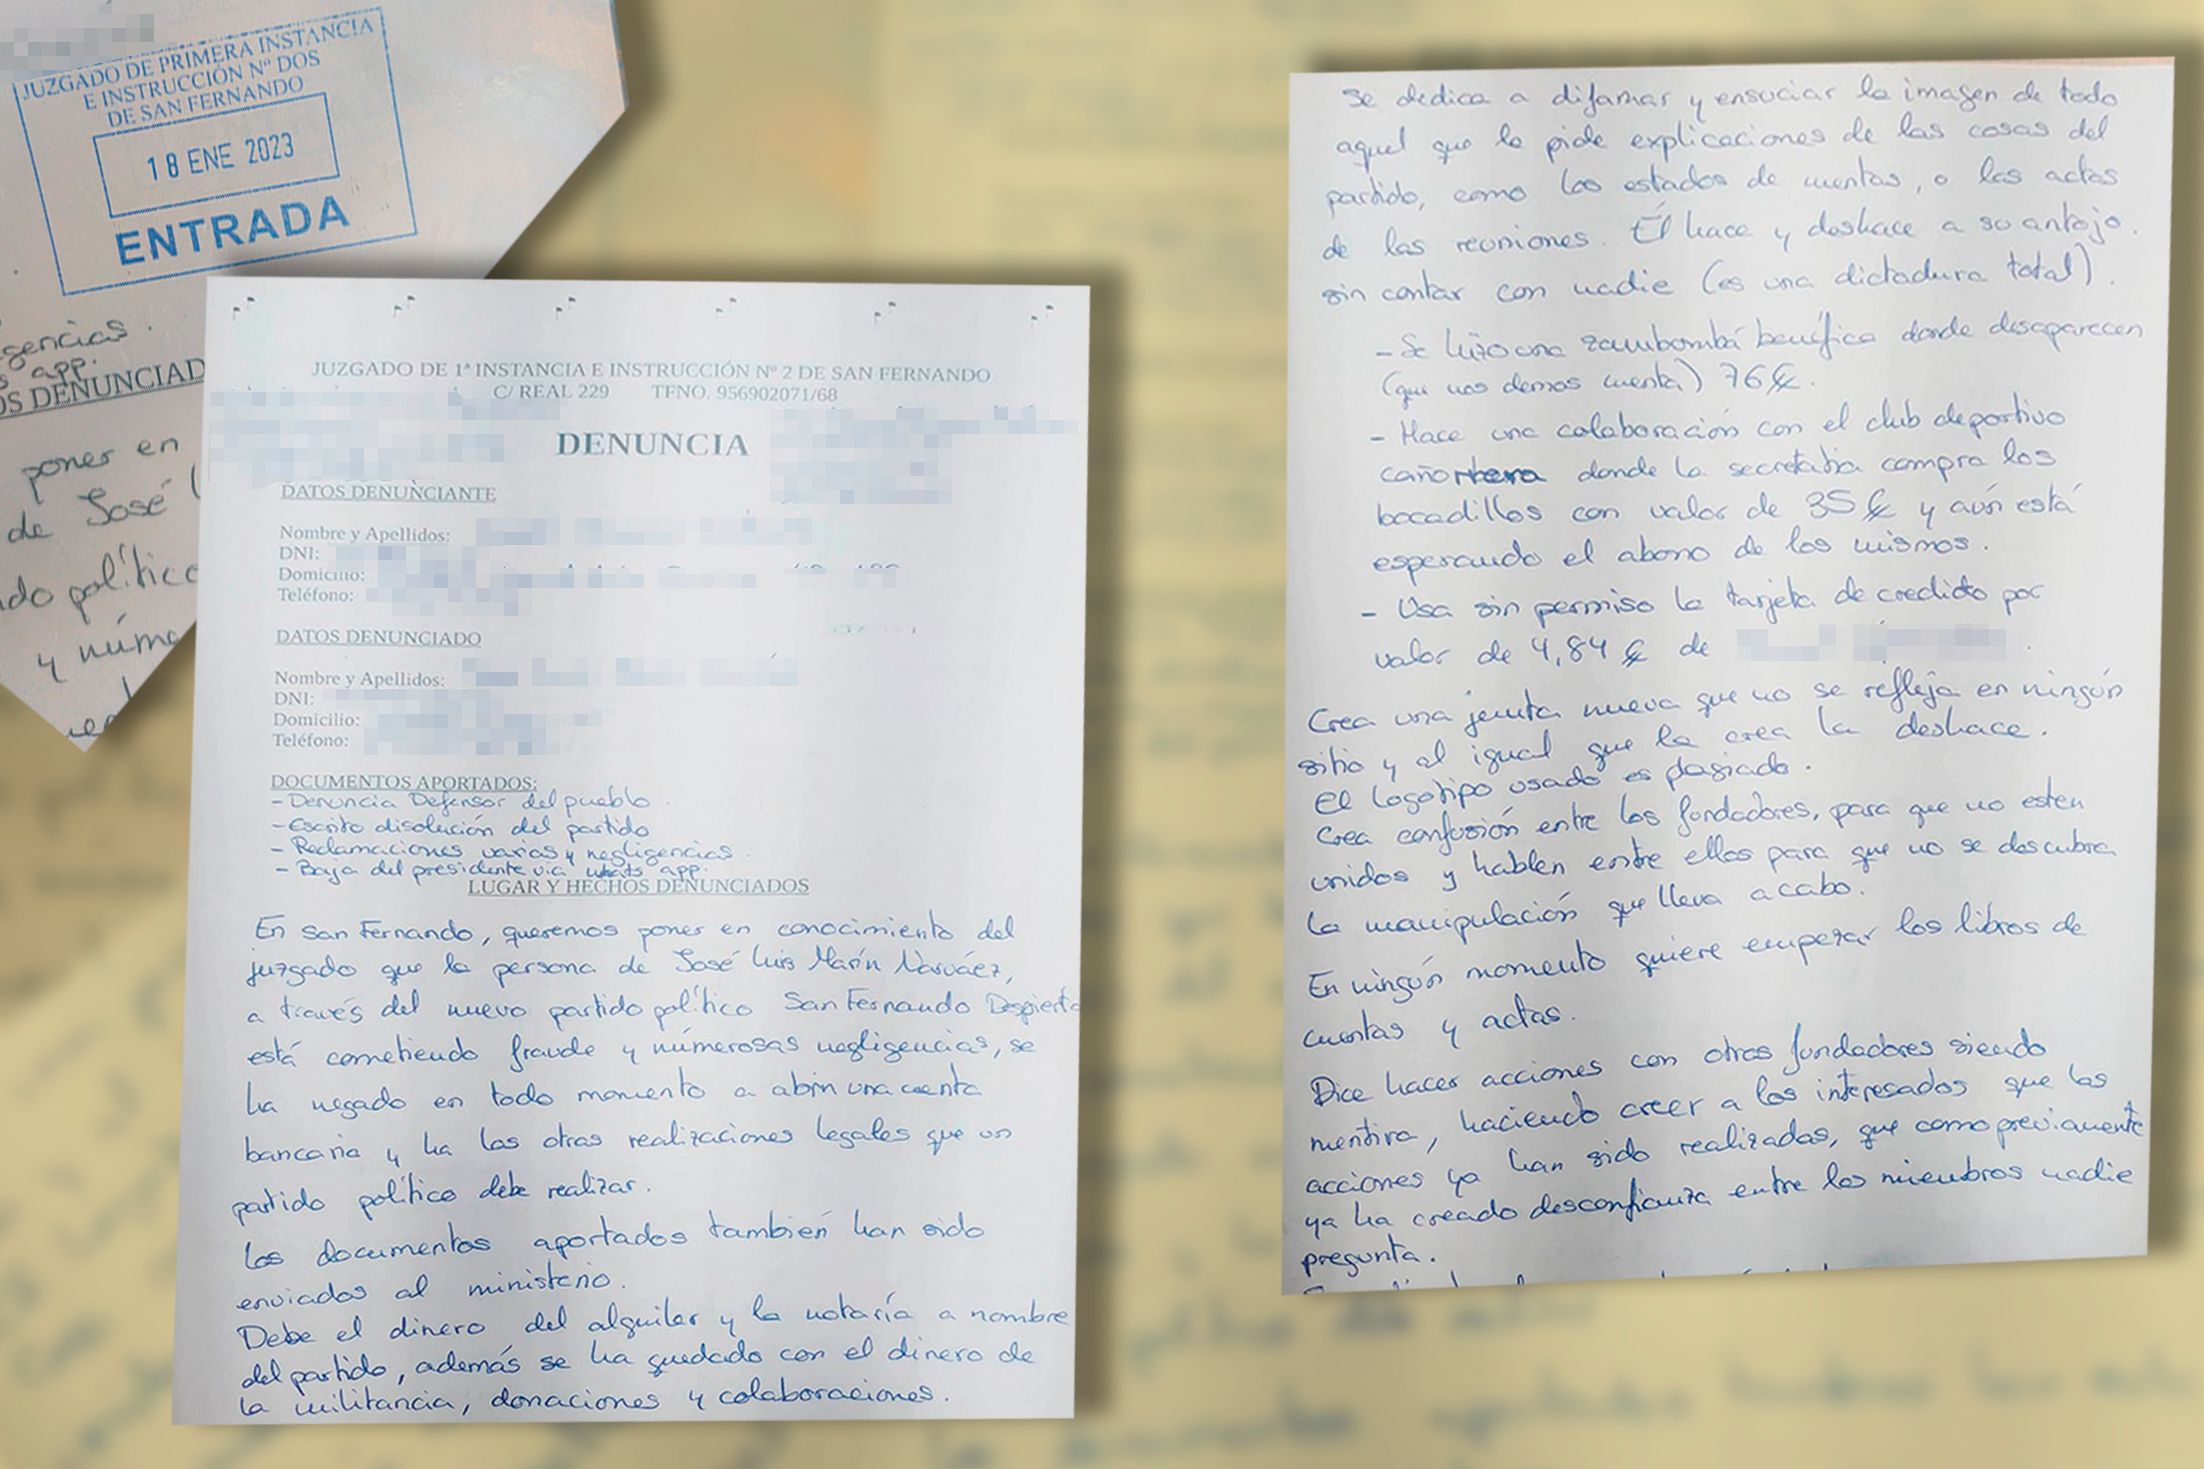 JUZGADO DE PRIMERA INSTANCIA
E INSTRUCCIÓN Nº DOS
DE SAN FERNANDO
18 ENE 2023
ENTRADA
gencias.
s app.
OS DENUNCIAD
poner en
de José L
ndo político
y núme
JUZGADO DE 1ª INSTANCIA E INSTRUCCIÓN Nº 2 DE SAN FERNANDO
C/ REAL 229 TFNO. 956902071/68
DENUNCIA
DATOS DENUNCIANTE
Nombre y Apellidos:
DNI:
Domicilio:
Teléfono:
DATOS DENUNCIADO
Nombre y Apellidos:
DNI:
Domicilio:
Teléfono:
DOCUMENTOS APORTADOS:
- Denuncia Defensor del pueblo.
- Escrito disolución del partido
- Reclamaciones varias y negligencias.
- Baja del presidente via whats app.
LUGAR Y HECHOS DENUNCIADOS
En San Fernando, queremos poner en conocimiento del
juzgado que la persona de José Luis Marín Narváez,
a través del nuevo partido político San Fernando Despierta
está cometiendo fraude y númerosas negligencias, se
ha negado en todo momento a abrir una cuenta
bancaria y ha las otras realizaciones legales que un
partido político debe realizar.
Los documentos aportados también han sido
enviados al ministerio.
Debe el dinero del alquiler y la notaría a nombre
del partido, además se ha quedado con el dinero de
la militancia, donaciones y colaboraciones.
Se dedica a difamar y ensuciar la imagen de todo
aquel que le pide explicaciones de las cosas del
partido, como los estados de cuentas, o las actas
de las reuniones. Él hace y deshace a su antojo.
sin contar con nadie (es una dictadura total).
- Se hizo una zambomba benéfica donde desaparecen
(que nos demos cuenta) 76 €.
- Hace una colaboración con el club deportivo
cañorrera donde la secretaria compra los
bocadillos con valor de 35 € y aún está
esperando el abono de los mismos.
- Usa sin permiso la tarjeta de credito por
valor de 4,84 € de
Crea una junta nueva que no se refleja en ningún
sitio y al igual que la crea la deshace.
El logotipo usado es plagiado.
Crea confusión entre los fundadores, para que no esten
unidos y hablen entre ellos para que no se descubra
la manipulación que lleva a cabo.
En ningún momento quiere empezar los libros de
cuentas y actas.
Dice hacer acciones con otros fundadores siendo
mentira, haciendo creer a los interesados que las
acciones ya han sido realizadas, que como previamente
ya ha creado desconfianza entre los miembros nadie
pregunta.